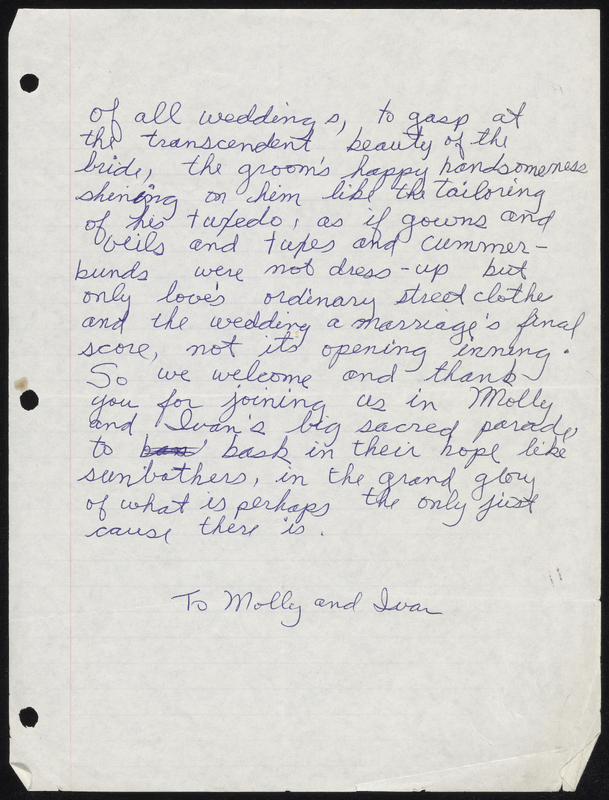 of all weddings, to gasp at
the transcendent beauty of the
bride, the groom's happy handsomeness
shining on him like the tailoring
of his tuxedo, as if gowns and
veils and tuxes and cummer-
bunds were not dress-up but
only love's ordinary street clothe
and the wedding a marriage's final
score, not its opening inning.
So we welcome and thank
you for joining us in Molly
and Ivan's big sacred parade,
to bask in their hope like
sunbathers, in the grand glory
of what is perhaps the only just
cause there is.
To Molly and Ivan